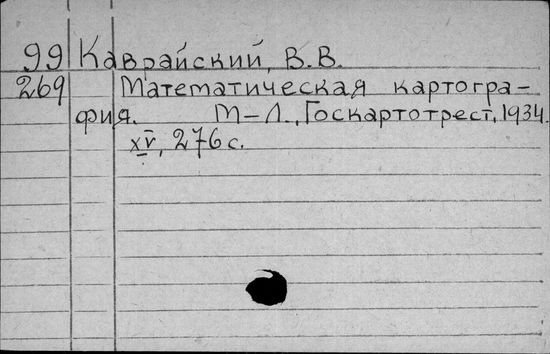 99 Каврайский, В.В.
269 Математическая картогра-
фия. М-Л., Госкартотрест, 1934.
XV, 276 с.